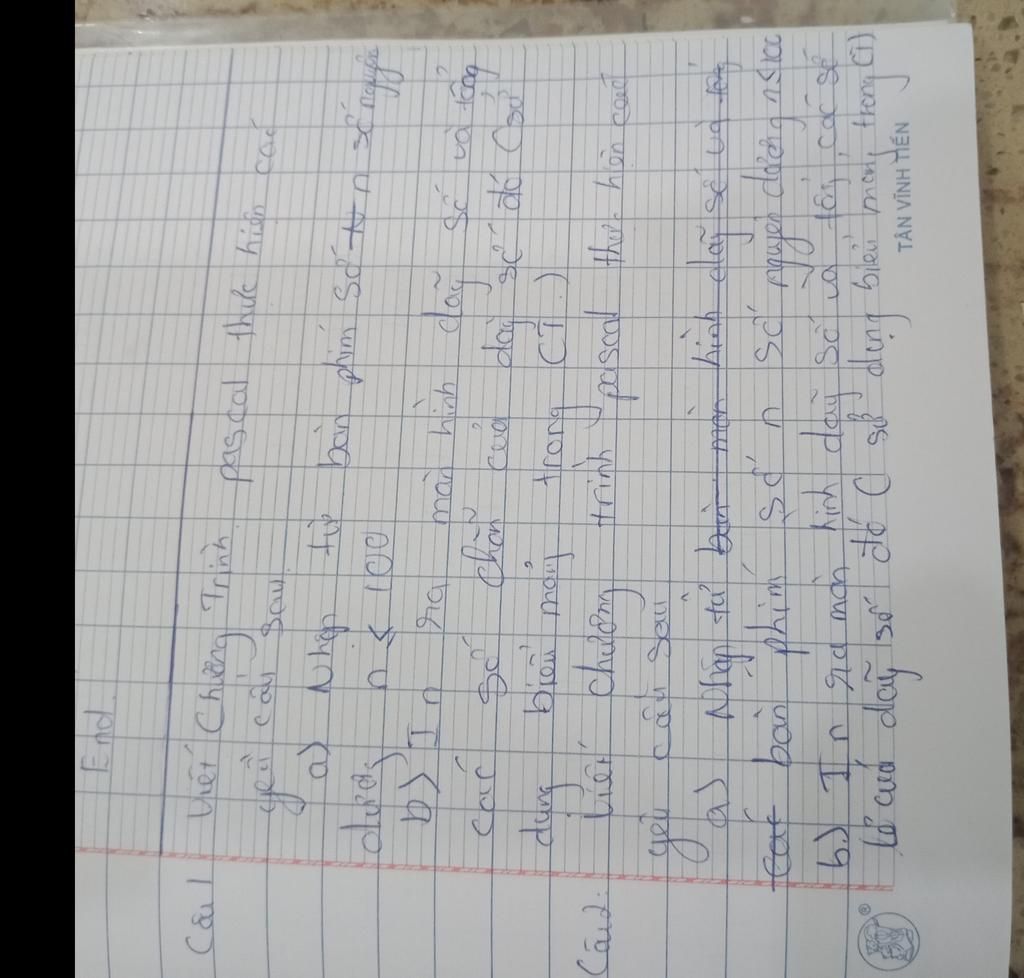 End.
Câu 1 Viết Chương Trình pascal thực hiện các
yêu cầu sau.
a) Nhập từ bàn phím số N n số nguyên
dương n ≤ 100
b) In ra màn hình dãy số và tổng
các số chẵn của dãy số đó (sử
dụng biến mảng trong CT.)
Câu 2: Viết chương trình pascal thực hiện các
yêu cầu sau
a) Nhập từ bàn màn hình dãy số và tổng
các bàn phím số n số nguyên dương n≤100
b.) In ra màn hình dãy số và tổng các số
lẻ của dãy số đó (sử dụng biến mảng trong CT)
TÂN VĨNH TIẾN
®